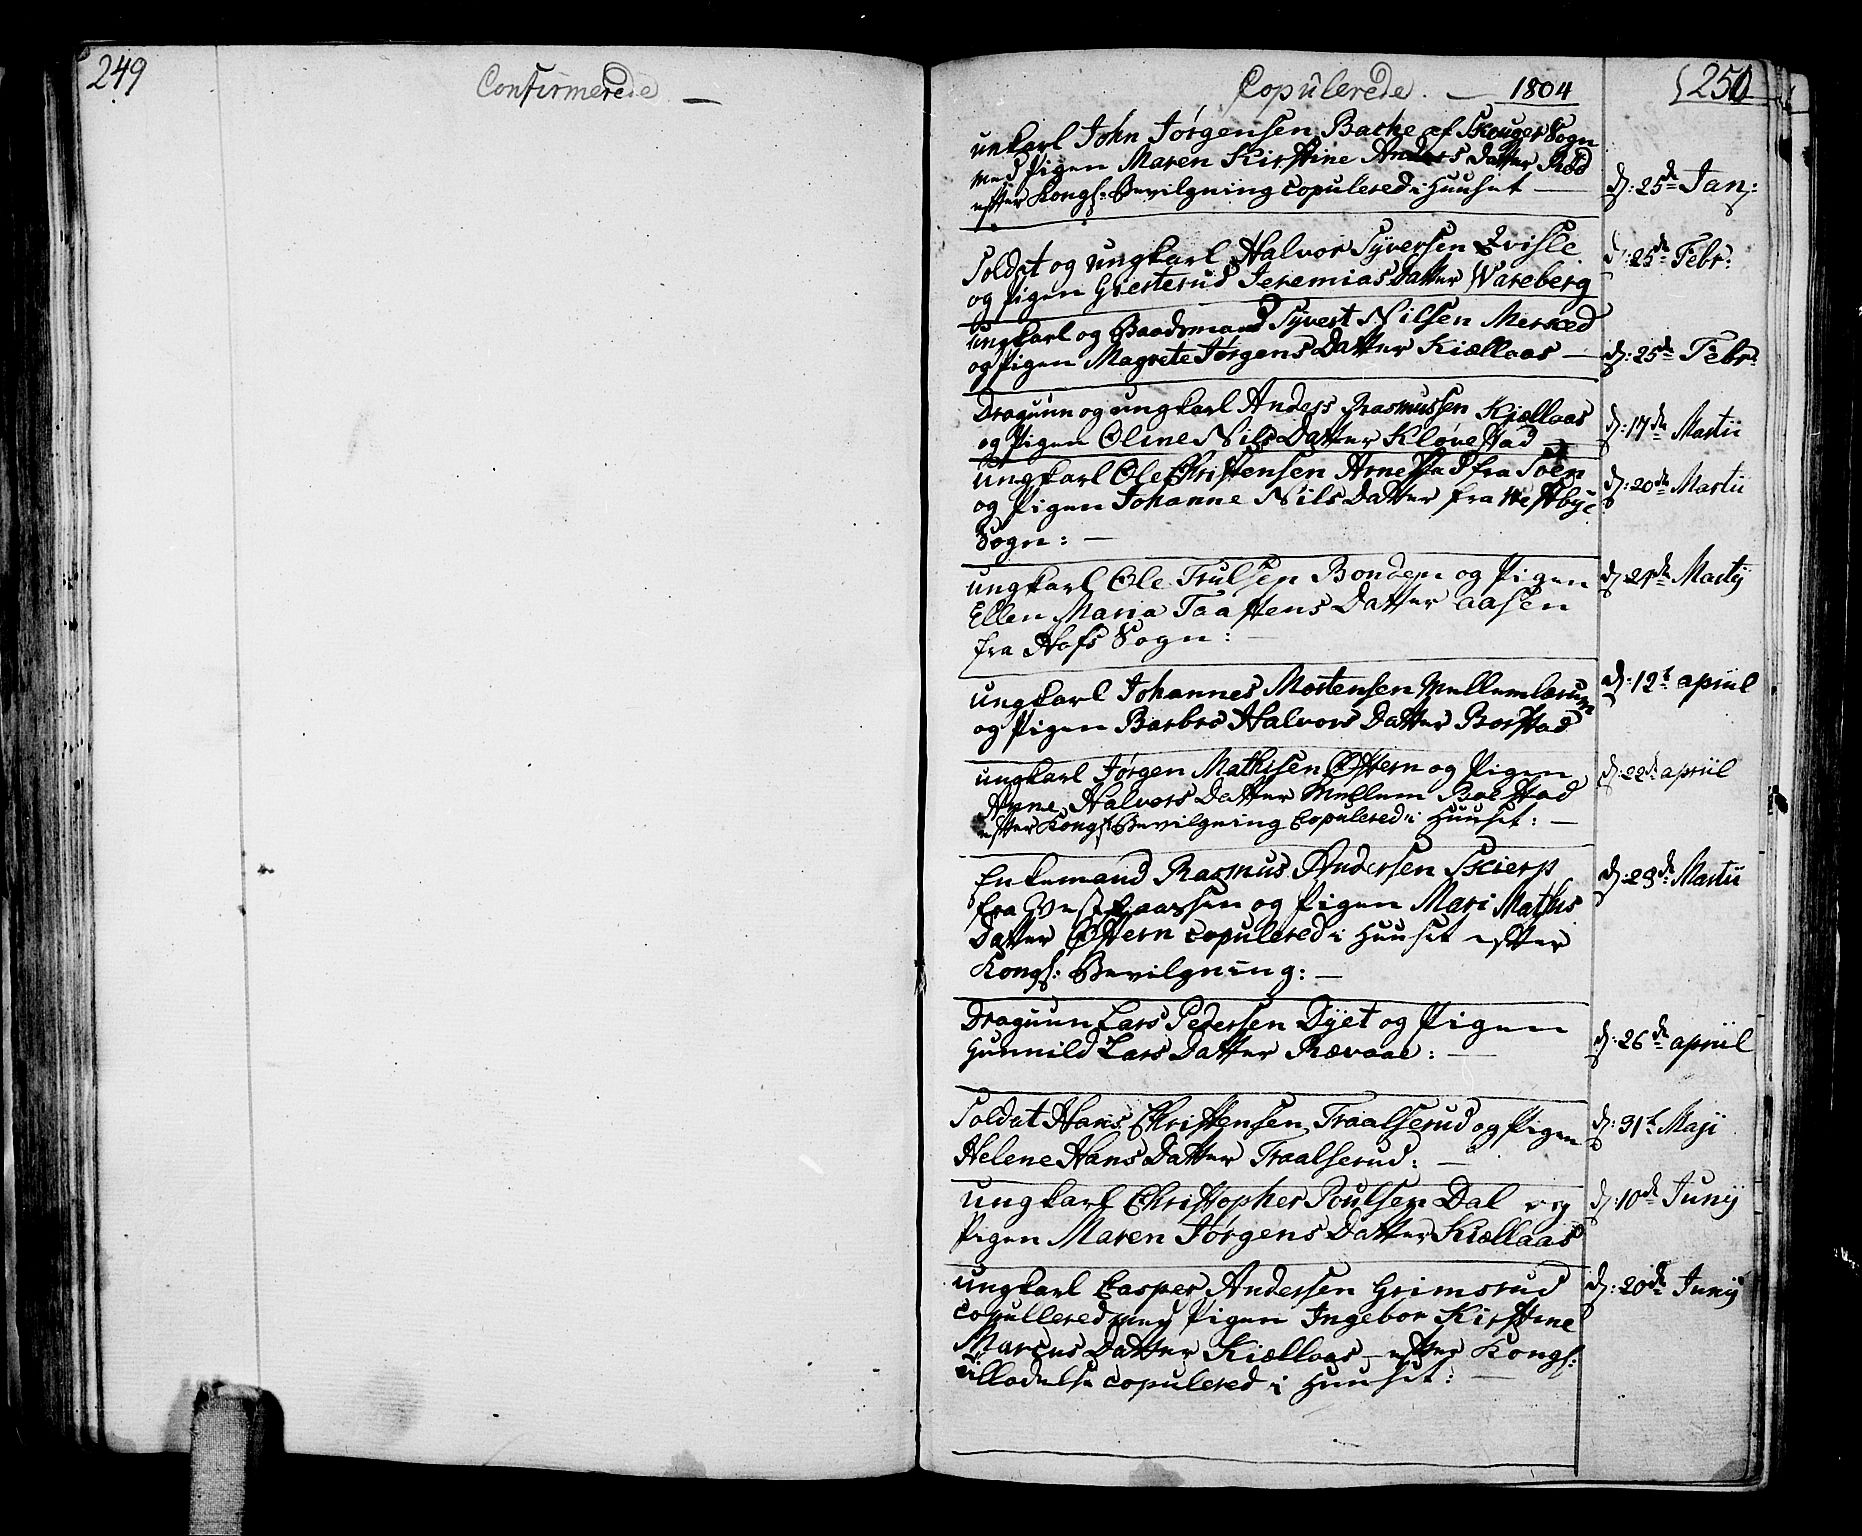 249
Confirmerede. —
Copulerede. — 1804
250
unkarl John Jørgensen Bache af Skouger Sogn
med Pigen Maren Kirstine Anders Datter Rød
efter Kongl: Bevilgning copulered i Huuset —
d: 25de Jan:
Soldat og ungkarl Halvor Syversen Qvisle
og Pigen Giertrud Jeremias Datter Wareberg
d: 25de Febr:
Ungkarl og Baadsmand Syvert Nilsen Mersked
og Pigen Magrete Jørgens Datter Kiællaas —
d: 25de Febr:
Draguun og ungkarl Anders Rasmussen Kjællaas
og Pigen Oline Nils Datter Kløvestad —
d: 17de Martii
Ungkarl Ole Christensen Arnestad fra Soen
og Pigen Johanne Nils Datter fra Westbye
Sogn: —
d: 20de Martii
ungkarl Ole Trulsen Bonden og Pigen
Ellen Maria Taastens Datter aasen
fra Hofs Sogn: —
d: Martij
ungkarl Johannes Mortensen Mellem
og Pigen Barbro Halvors Datter Borstad
d: 12t apriil
ungkarl Jørgen Mathisen Østern og Pigen
Anne Halvors Datter Mellem Bolstad
efter Kongl: Bevilgning Copulered i Huuset: —
d: 22de apriil
Enkemand Rasmus Andersen Skierp
fra og Pigen Mari Mathis
Datter Østern copulered i Huuset efter
Kongl: Bevilgning: —
d: 28de Martii
Draguun Lars Pedersen Dyet og Pigen
Gunnild Lars Datter Rævaae: —
d: 26de apriil
Soldat Hans Christensen Traalserud og Pigen
Helene Hans Datter Traalserud: —
d: 31t Maji
ungkarl Christopher Poulsen Dal og
Pigen Maren Jørgens Datter Kiællaas
d: 10de Junij
ungkarl Casper Andersen Grimsrud
copullered med Pigen Ingebor Kirstine
Marcus Datter Kiællaas — efter Kongl:
Tilladelse copulered i Huuset: —
d: 20de Junij